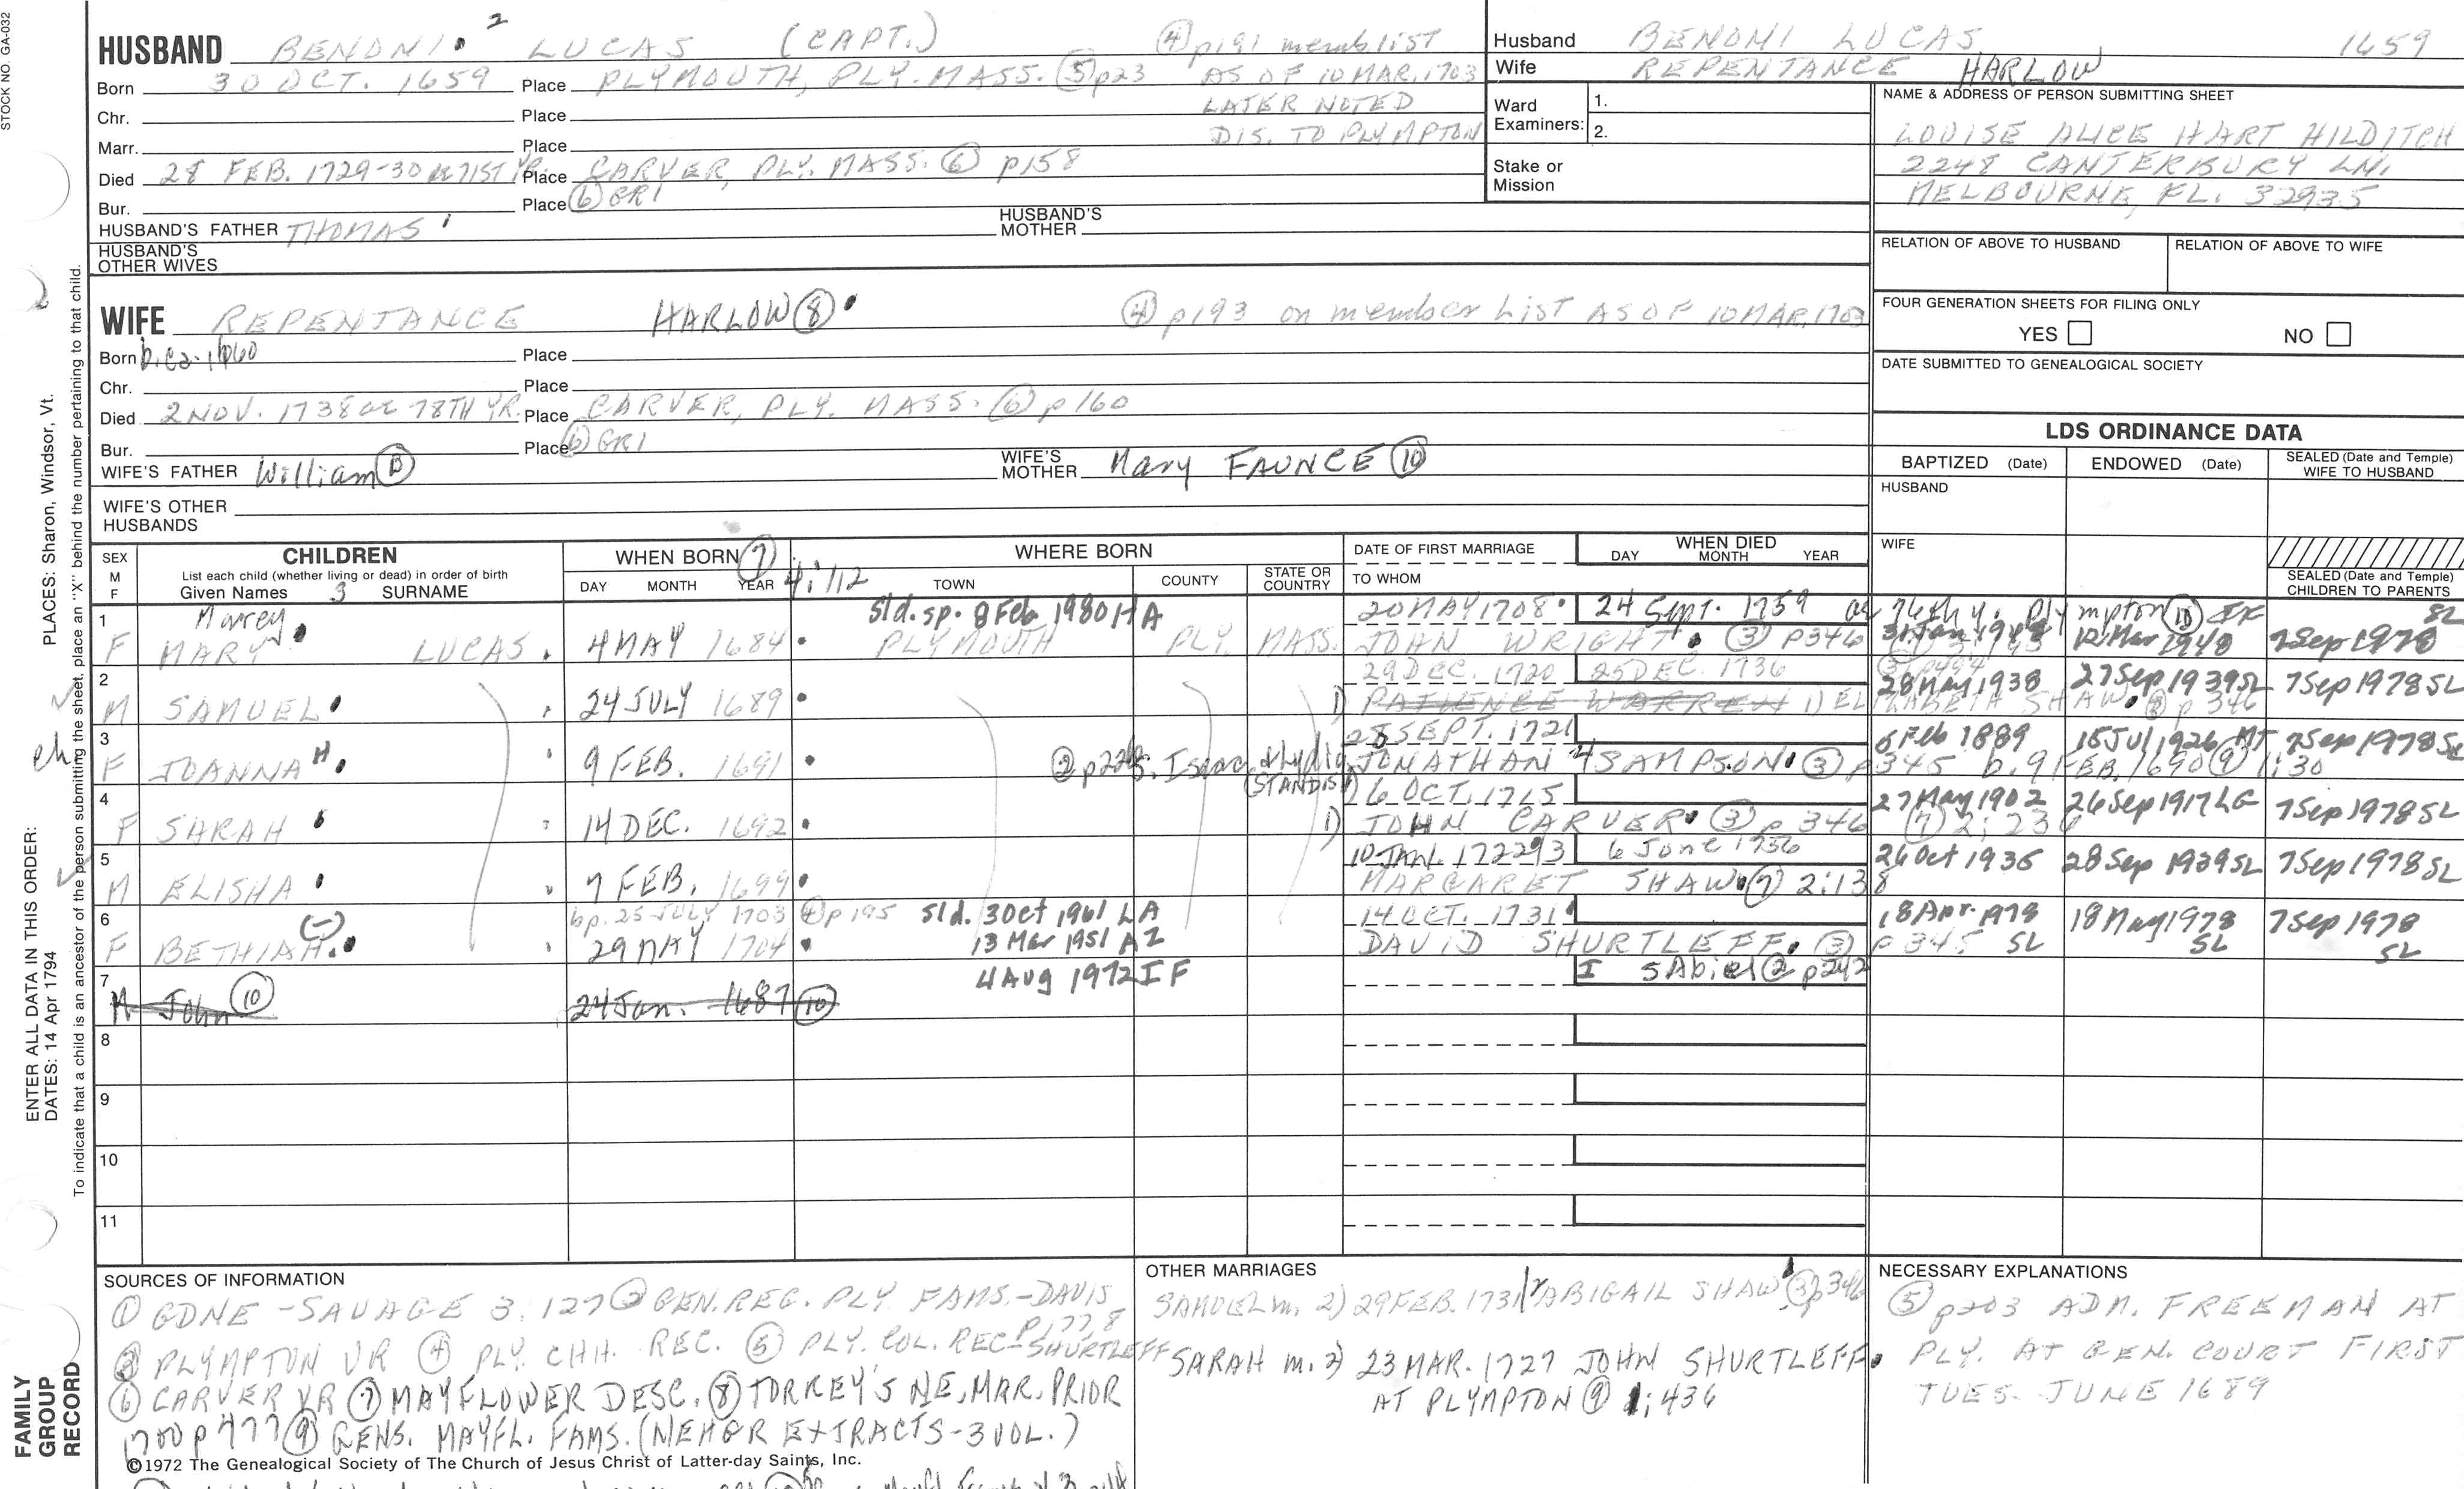 STOCK NO. GA-032
HUSBAND BENONI 2 LUCAS (CAPT.) ④ p191 memb list
Born 30 OCT. 1659 Place PLYMOUTH, PLY. MASS. ⑤ p23 AS OF 10 MAR. 1703
Chr. Place LATER NOTED
Marr. Place DIS. TO PLYMPTON
Died 28 FEB. 1729-30 ae 71ST YR. Place CARVER, PLY. MASS. ⑥ p158
Bur. Place ⑥ GR1
HUSBAND'S FATHER THOMAS 1 HUSBAND'S MOTHER
HUSBAND'S OTHER WIVES
Husband BENONI LUCAS 1659
Wife REPENTANCE HARLOW
Ward Examiners: 1.
2.
Stake or Mission
NAME & ADDRESS OF PERSON SUBMITTING SHEET
LOUISE ALICE HART HILDITCH
2248 CANTERBURY LN.
MELBOURNE, FL. 32935
RELATION OF ABOVE TO HUSBAND RELATION OF ABOVE TO WIFE
FOUR GENERATION SHEETS FOR FILING ONLY
YES NO
DATE SUBMITTED TO GENEALOGICAL SOCIETY
WIFE REPENTANCE HARLOW ⑧ ④ p193 on member LIST AS OF 10 MAR. 1703
Born b. ca. 1660 Place
Chr. Place
Died 2 NOV. 1738 ae 78TH YR. Place CARVER, PLY. MASS. ⑥ p160
Bur. Place ⑥ GR1
WIFE'S FATHER William WIFE'S MOTHER Mary FAUNCE ⑩
WIFE'S OTHER HUSBANDS
LDS ORDINANCE DATA
BAPTIZED (Date) ENDOWED (Date) SEALED (Date and Temple) WIFE TO HUSBAND
HUSBAND
WIFE
SEALED (Date and Temple) CHILDREN TO PARENTS
SEX M F CHILDREN WHEN BORN ⑦ 4:112 WHERE BORN DATE OF FIRST MARRIAGE WHEN DIED
List each child (whether living or dead) in order of birth DAY MONTH YEAR
Given Names 3 SURNAME DAY MONTH YEAR TOWN COUNTY STATE OR COUNTRY TO WHOM
1 Marey Sld. sp. 8 Feb 1980 HA 20 MAY 1708 24 Sept. 1759 76th y. Plympton ⑩ SL
F MARY LUCAS 4 MAY 1684 PLYMOUTH PLY. MASS. JOHN WRIGHT ③ p346 12 Mar 1948 7 Sep 1978
2 29 DEC. 1720 25 DEC. 1736 ③ p494
M SAMUEL 24 JULY 1689 1) PATIENCE WARREN 1) ELIZABETH SHAW ③ p 346 28 May 1938 27 Sep 1939 SL 7 Sep 1978 SL
3 28 SEPT. 1721 6 Feb 1889 15 Jul 1926 MT 7 Sep 1978 SL
F JOANNA H 9 FEB. 1691 ② p226 s. Isaac & Lydia (STANDISH) JONATHAN 4 SAMPSON ③ p345 b. 9 FEB. 1690 ⑨ 1:30
4 1) 6 OCT. 1715 27 May 1902 26 Sep 1917 LG 7 Sep 1978 SL
F SARAH 14 DEC. 1692 1) JOHN CARVER ③ p 346 ⑦ 2:236
5 10 JAN. 1722/3 6 June 1756 26 Oct 1935 28 Sep 1939 SL 7 Sep 1978 SL
M ELISHA 7 FEB. 1699 MARGARET SHAW ⑦ 2:138
6 bp. 25 JULY 1703 ④ p 195 Sld. 30 Oct 1961 LA 14 OCT. 1731 18 Apr. 1978 SL 18 May 1978 SL 7 Sep 1978 SL
F BETHIAH (-) 29 MAY 1704 13 Mar 1951 AZ DAVID SHURTLEFF ③ p 345
7 4 Aug 1972 IF I s Abiel ② p242
M John ⑩ 24 Jan. 1687 ⑩
8
9
10
11
SOURCES OF INFORMATION
① GDNE - SAVAGE 3:127 ② GEN. REG. PLY FAMS. - DAVIS p177,8
③ PLYMPTON VR ④ PLY. CHH. REC. ⑤ PLY. COL. REC - SHURTLEFF
⑥ CARVER VR ⑦ MAYFLOWER DESC. ⑧ TORREY'S NE. MAR. PRIOR
1700 p 477 ⑨ GENS. MAYFL. FAMS. (NEHGR EXTRACTS - 3 VOL.)
©1972 The Genealogical Society of The Church of Jesus Christ of Latter-day Saints, Inc.
OTHER MARRIAGES
SAMUEL m. 2) 29 FEB. 1731/2 ABIGAIL SHAW ③ p346
SARAH m. 2) 23 MAR. 1727 JOHN SHURTLEFF
AT PLYMPTON ⑨ 1:436
NECESSARY EXPLANATIONS
⑤ p203 ADM. FREEMAN AT
PLY. AT GEN. COURT FIRST
TUES. JUNE 1689
ENTER ALL DATA IN THIS ORDER:
DATES: 14 Apr 1794 PLACES: Sharon, Windsor, Vt.
To indicate that a child is an ancestor of the person submitting the sheet, place an "X" behind the number pertaining to that child.
FAMILY
GROUP
RECORD